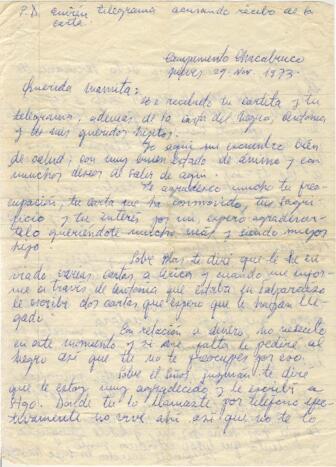 P.D. envien telegrama acusando recibo de la
carta.
Campamento Chacabuco
Jueves 29. Nov. 1973.-
Querida mamita:
He recibido tu cartita y tu
telegrama, además de la carta del Negro, Antonia
y de mis queridos hijitos.
Yo aquí me encuentro bien
de salud, con muy buen estado de ánimo y con
muchos deseos de salir de aquí.
Te agradezco mucho tu preo-
cupación, tu carta que ha conmovido, tu sacri-
ficio y tu interés por mí, espero agradecer-
telo queriéndote mucho más y siendo mejor
hijo.
Sobre Mas te diré que le he en-
viado varias cartas a Arica y cuando me infor-
me a través de Antonia que estaba en Valparaíso
le escribí dos cartas que espero que le hayan lle-
gado.
Con relación a dinero no necesito
en este momento y si me falta le pediré al
Negro así que tu no te preocupes por eso.
Sobre el Señor Guzmán te diré
que le estoy muy agradecido y le escribí a
Stgo. Donde tu lo llamaste por teléfono efec-
tivamente no vive ahí así que no te lo